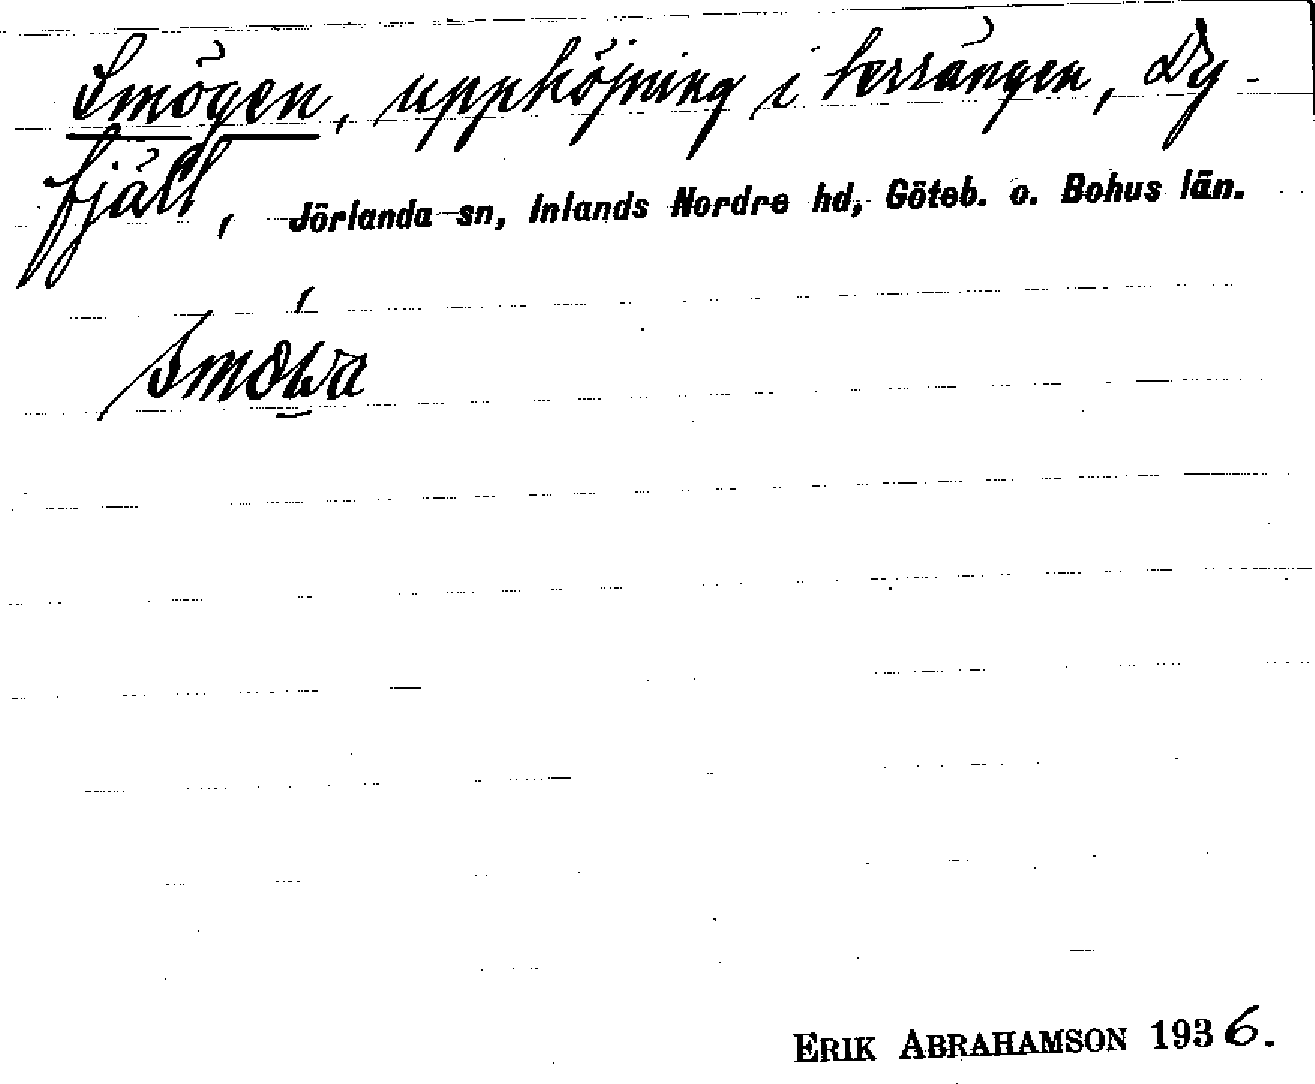 Smögen, upphöjning i terrängen, Dy-
fjäll, Jörlanda sn, Inlands Nordre hd, Göteb. o. Bohus län.
ERIK ABRAHAMSON 1936.